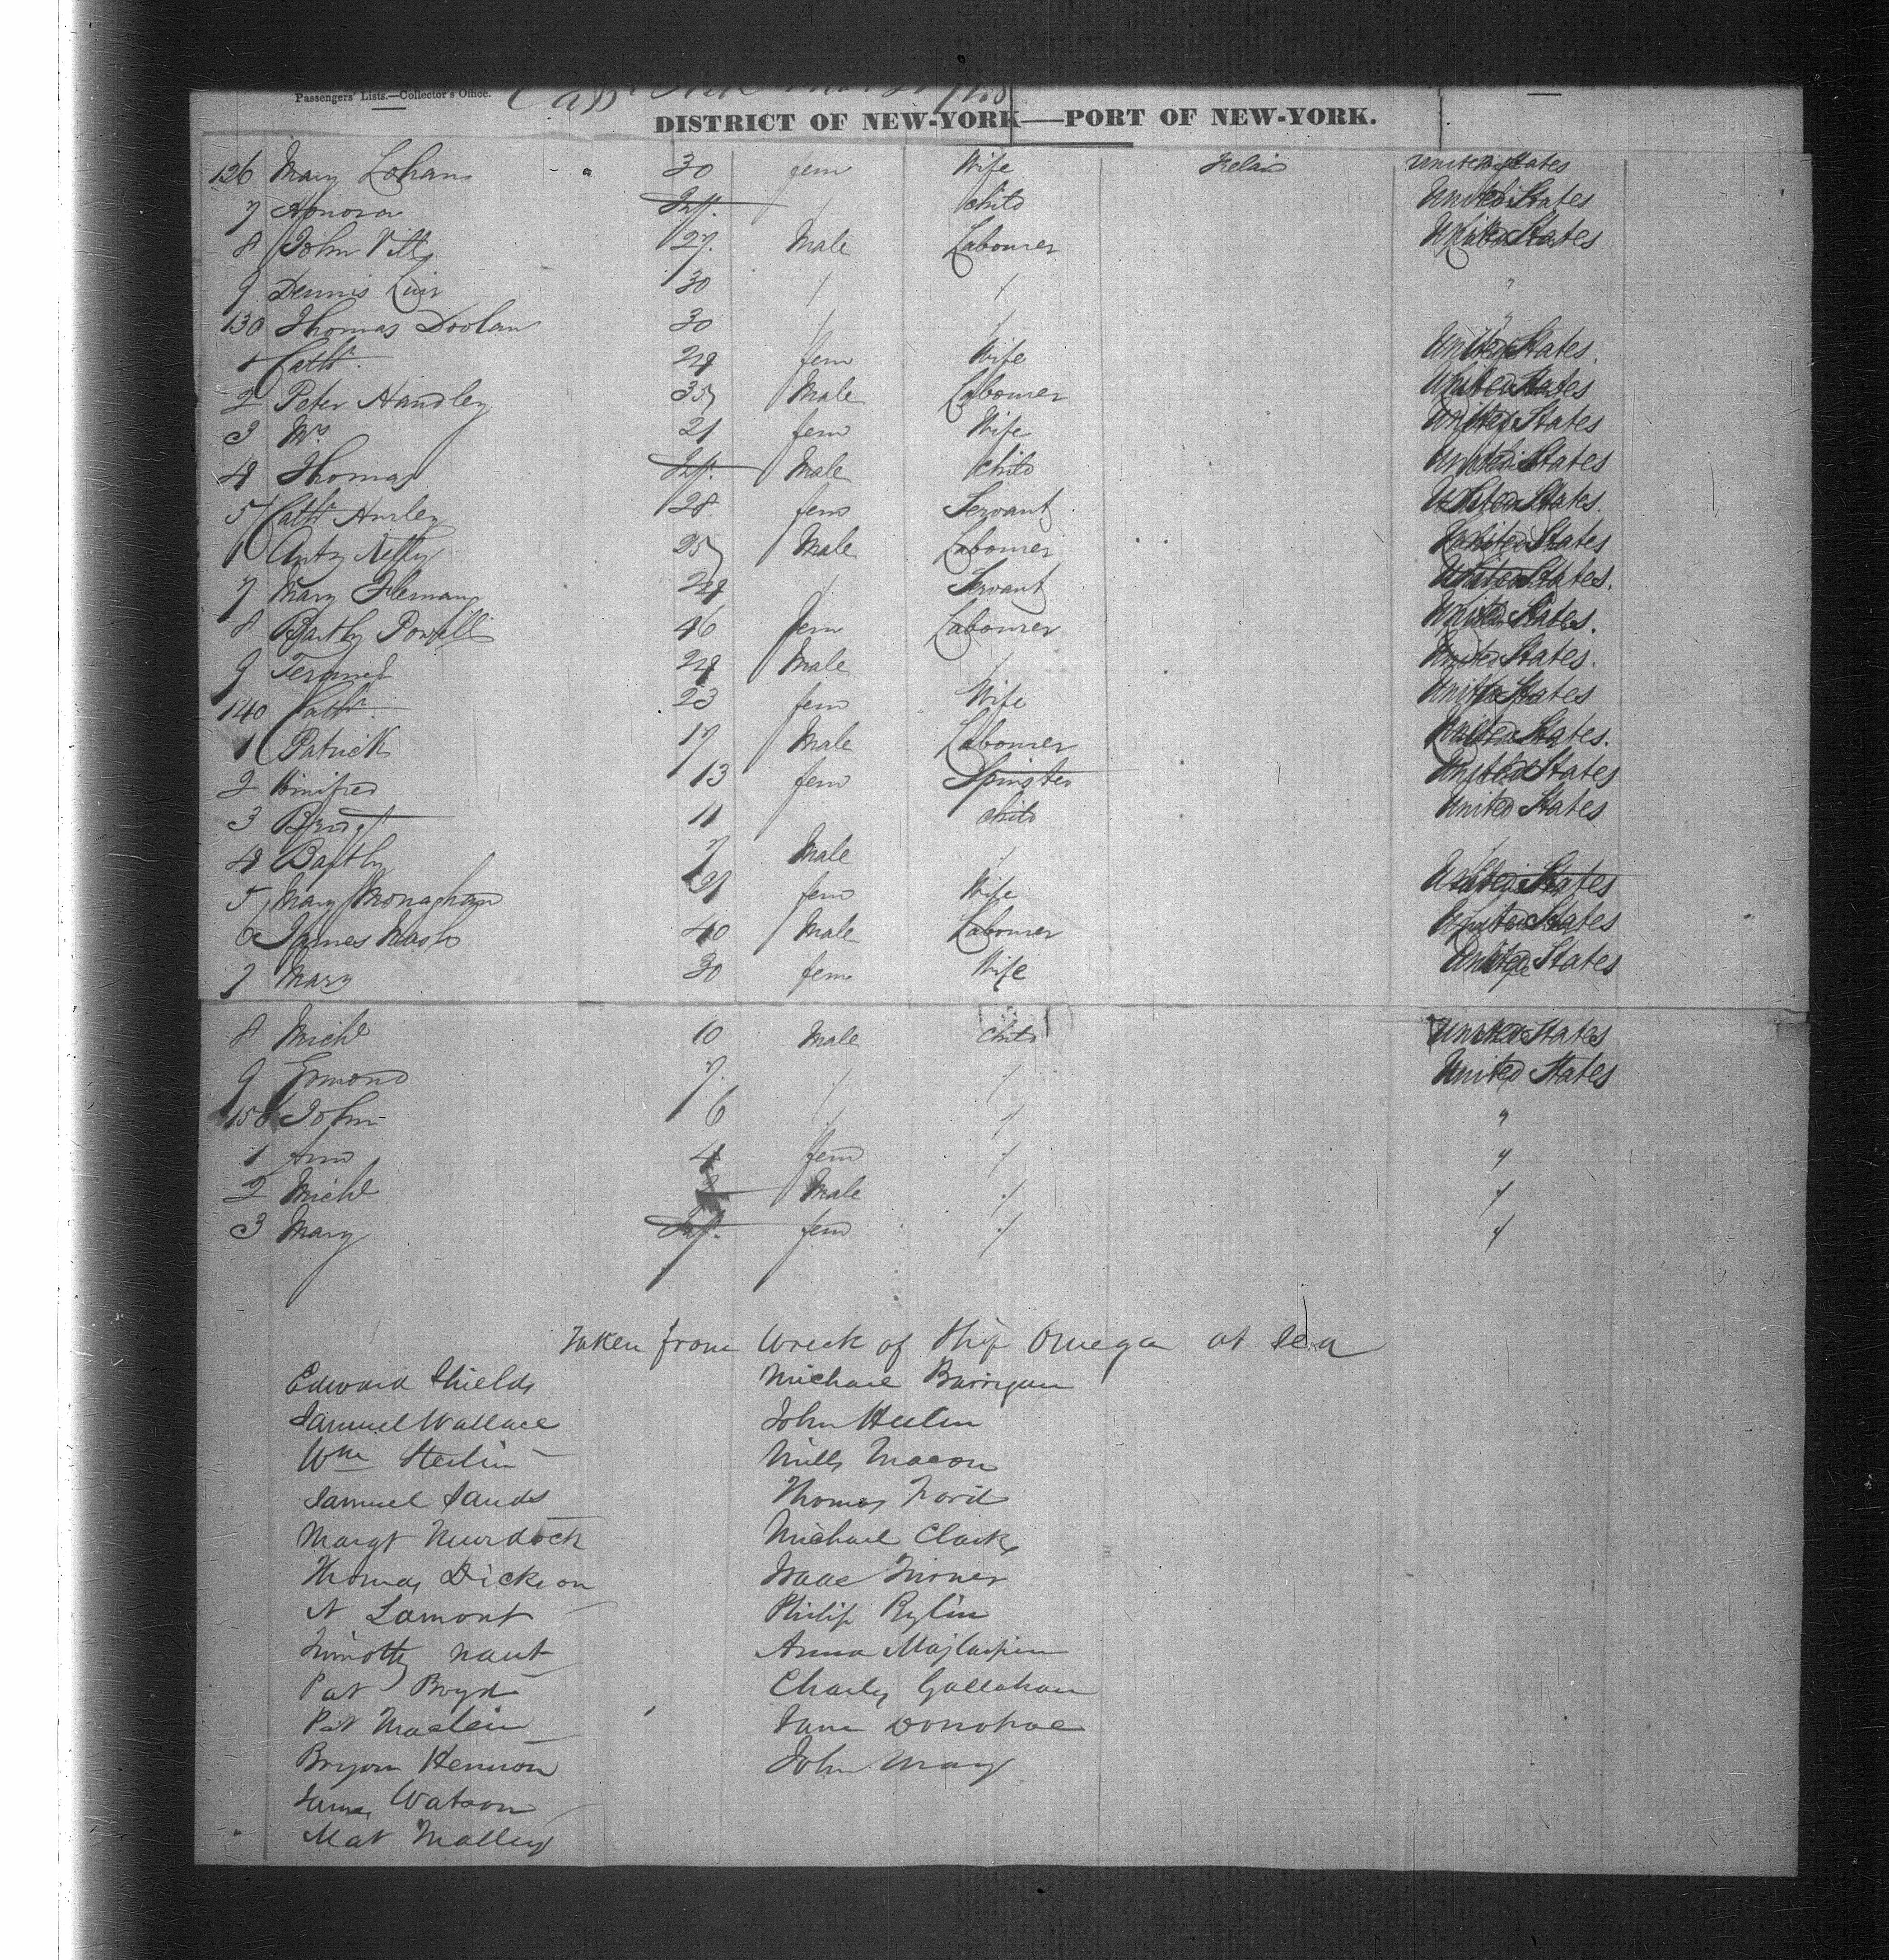 Passengers' Lists.—Collector's Office.
DISTRICT OF NEW-YORK—PORT OF NEW-YORK.
126 Mary Lohan 30 fem Wife Ireland United States
7 Honora Inft. / Child United States
8 John 27 Male Labourer United States
9 Dennis 30 / / "
130 Thomas Doolan 30 / / "
1 Cathn 24 fem Wife United States
2 Peter Handley 35 Male Labourer United States
3 Mrs 21 fem Wife United States
4 Thomas Inft. Male Child United States
5 Cathn Hurley 28 fem Servant United States
6 Anty 25 Male Labourer United States
7 Mary Flemany 24 / Servant United States
8 Bartly Powell 46 fem Labourer United States
9 24 Male / United States
140 Cathn 23 fem Wife United States
1 Patrick 17 Male Labourer United States
2 Winifred 13 fem Spinster United States
3 Bridgt 11 Child United States
4 Bartly 7 Male / /
5 Mary Monaghan 21 fem Wife United States
6 James Nash 40 Male Labourer United States
7 Mary 30 fem Wife United States
8 Michl 10 Male Child United States
9 Edmond 7 / / United States
150 John 6 / / "
1 Ann 4 fem / "
2 Michl Male / "
3 Mary Inft. fem / "
Taken from Wreck of Ship Omega at Sea
Edward Shields Michael Barrigan
Samuel Wallace John
Wm Sterlin Mills Macon
Samuel Sands Thomas Ford
Margt Murdock Michael Clark
Thomas Dickson Isaac Turner
N Lamont Philip Rylin
Timothy Naut Anna
Pat Boyd Charles Gallahan
Pat Maclein Jane Donohoe
Bryan Hennon John May
James Watson
Mat Malley